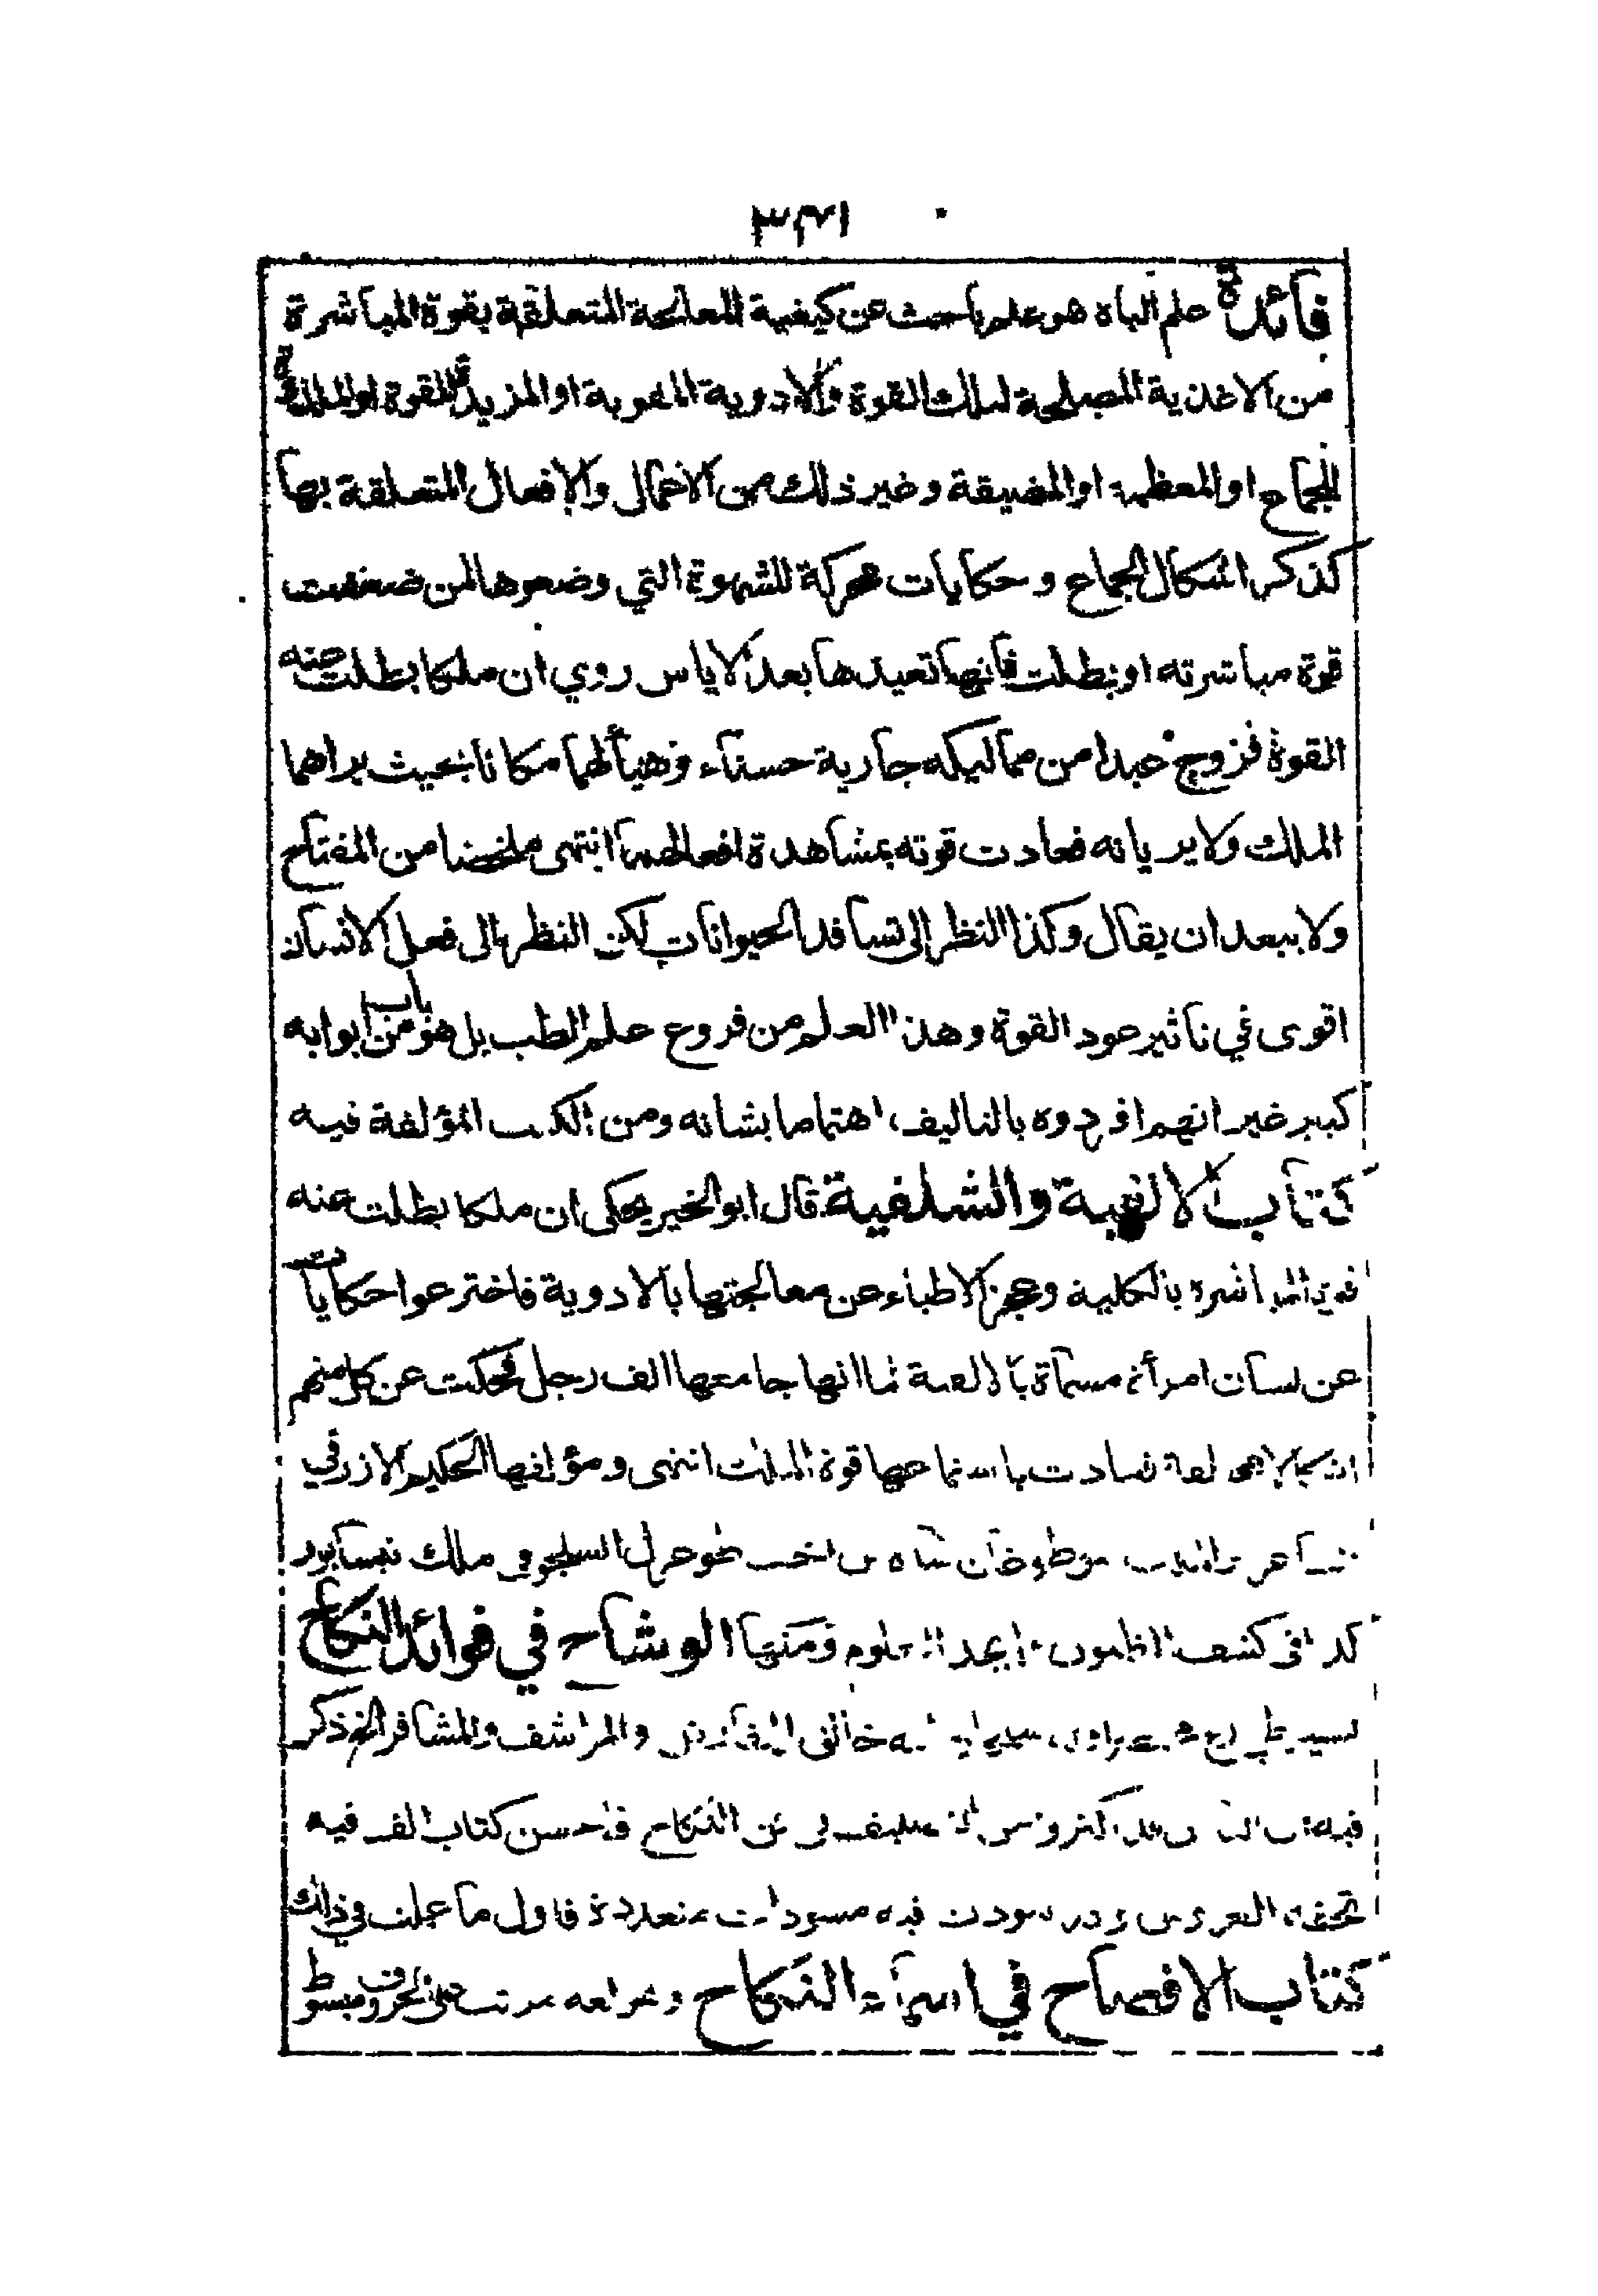 ٣٣١
فائدة علم الباه هو علم باحث عن كيفية المعالجة المتعلقة بقوة المباشرة
من الاغذية المصلحة لتلك القوة والادوية المقوية او المزيدة للقوة او الملذذة
للجماع او المعظمة او المضيقة وغير ذلك من الاعمال والافعال المتعلقة بها
كذكر اشكال الجماع وحكايات محركة للشهوة التي وضعوها لمن ضعفت
قوة مباشرته او بطلت فانها تعيدها بعد الاياس روي ان ملكا بطلت عنه
القوة فزوج عبدا من مماليكه جارية حسناء وهيأ لهما مكانا بحيث يراهما
الملك ولا يريانه فعادت قوته بمشاهدة افعالهما انتهى ملخصا من المفتاح
ولا يبعد ان يقال وكذا النظر الى تسافد الحيوانات لكن النظر الى فعل الانسان
اقوى في تاثير عود القوة وهذا العلم من فروع علم الطب بل هو باب من ابوابه
كبير غير انهم افردوه بالتاليف اهتماما بشانه ومن الكتب المؤلفة فيه
كتاب الالفية والشلفية قال ابو الخير يحكى ان ملكا بطلت عنه
قوة المباشرة بالكلية وعجز الاطباء عن معالجتها بالادوية فاخترعوا حكايات
عن لسان امرأة مسماة بالالفية لما انها جامعها الف رجل فحكت عن كل منهم
باستماعها قوة الملك انتهى ومؤلفها الحكيم الازرقي
السلجوقي ملك نيسابور
كذا في كشف الظنون وابجد العلوم ومنها الوشاح في فوائد النكاح
والمراشف والمشافر الخ ذكر
فيه النكاح فاحسن كتاب الف فيه
تحفة العروس وقد سودت فيه مسودات متعددة فاول ما عملت في ذلك
كتاب الافصاح في اسماء النكاح مرتب على الحروف مبسوط